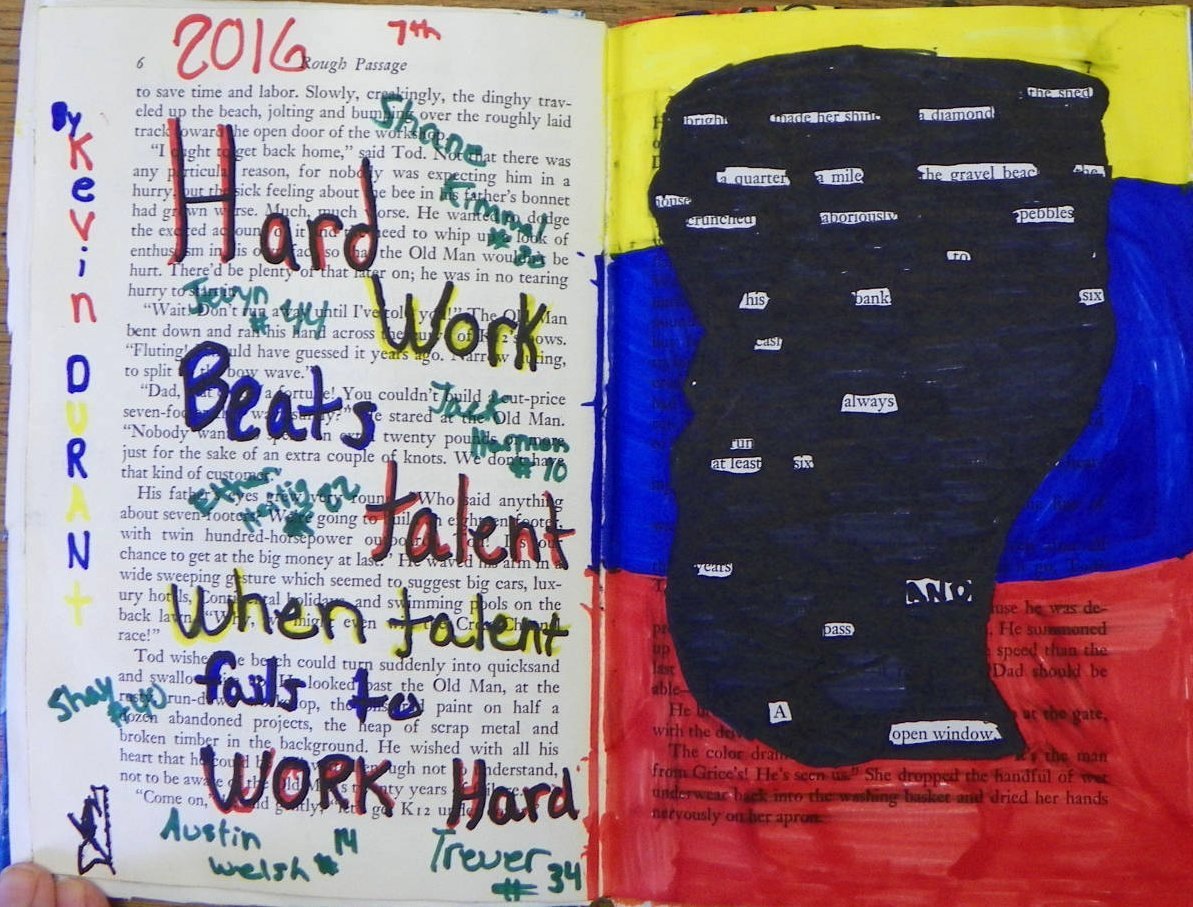 2016 7th
6 Rough Passage
to save time and labor. Slowly, creakingly, the dinghy trav-
eled up the beach, jolting and bumping over the roughly laid
track toward the open door of the workshop.
"I ought to get back home," said Tod. Not that there was
any particular reason, for nobody was expecting him in a
hurry, but the sick feeling about the bee in his father's bonnet
had grown worse. Much, much worse. He wanted to dodge
the excited account of it and the need to whip up a look of
enthusiasm in his own face so that the Old Man wouldn't be
hurt. There'd be plenty of that later on; he was in no tearing
hurry to start it.
"Wait! Don't run away until I've told you!" The Old Man
bent down and ran his hand across the curve of K12's bows.
"Fluting! should have guessed it years ago. Narrow fluting,
to split the bow wave."
"Dad, a fortune! You couldn't build a cut-price
seven-foot He stared at the Old Man.
"Nobody wants to spend an extra twenty pounds or more
just for the sake of an extra couple of knots. We don't have
that kind of customer."
His father's eyes grew very round. "Who said anything
about seven-footers? We're going to build an eighteen-footer,
with twin hundred-horsepower outboards, Tod! It's our
chance to get at the big money at last." He waved his arm in a
wide sweeping gesture which seemed to suggest big cars, lux-
ury hotels, Continental holidays and swimming pools on the
back lawn. "Why, we might even win the Cross-Channel
race!"
Tod wished the beach could turn suddenly into quicksand
and swallow him up. He looked past the Old Man, at the
rusty, run-down workshop, the paint on half a
dozen abandoned projects, the heap of scrap metal and
broken timber in the background. He wished with all his
heart that he could be young enough not to understand,
not to be aware of the Old Man's twenty years of failure.
"Come on," said gently, "let's get K12 under
By Kevin DURANt
Hard
Work
Beats
talent
when talent
fails to
WORK Hard
Shane
Kimmel
Jevyn #44
Jack
#10
Ethan
Shay
#00
Austin
Welsh #14
Trever
#34
the shed
bright made her shine a diamond
a quarter a mile the gravel beac the
house
crunched aboriously pebbles
to
his bank six
cash
always
run
at least six
years
AND
pass
A
open window.
use he was de-
He summoned
speed than the
Dad should be
able—
at the gate,
with the
The color It's the man
from Grice's! He's seen us." She dropped the handful of wet
underwear back into the washing basket and dried her hands
nervously on her apron.